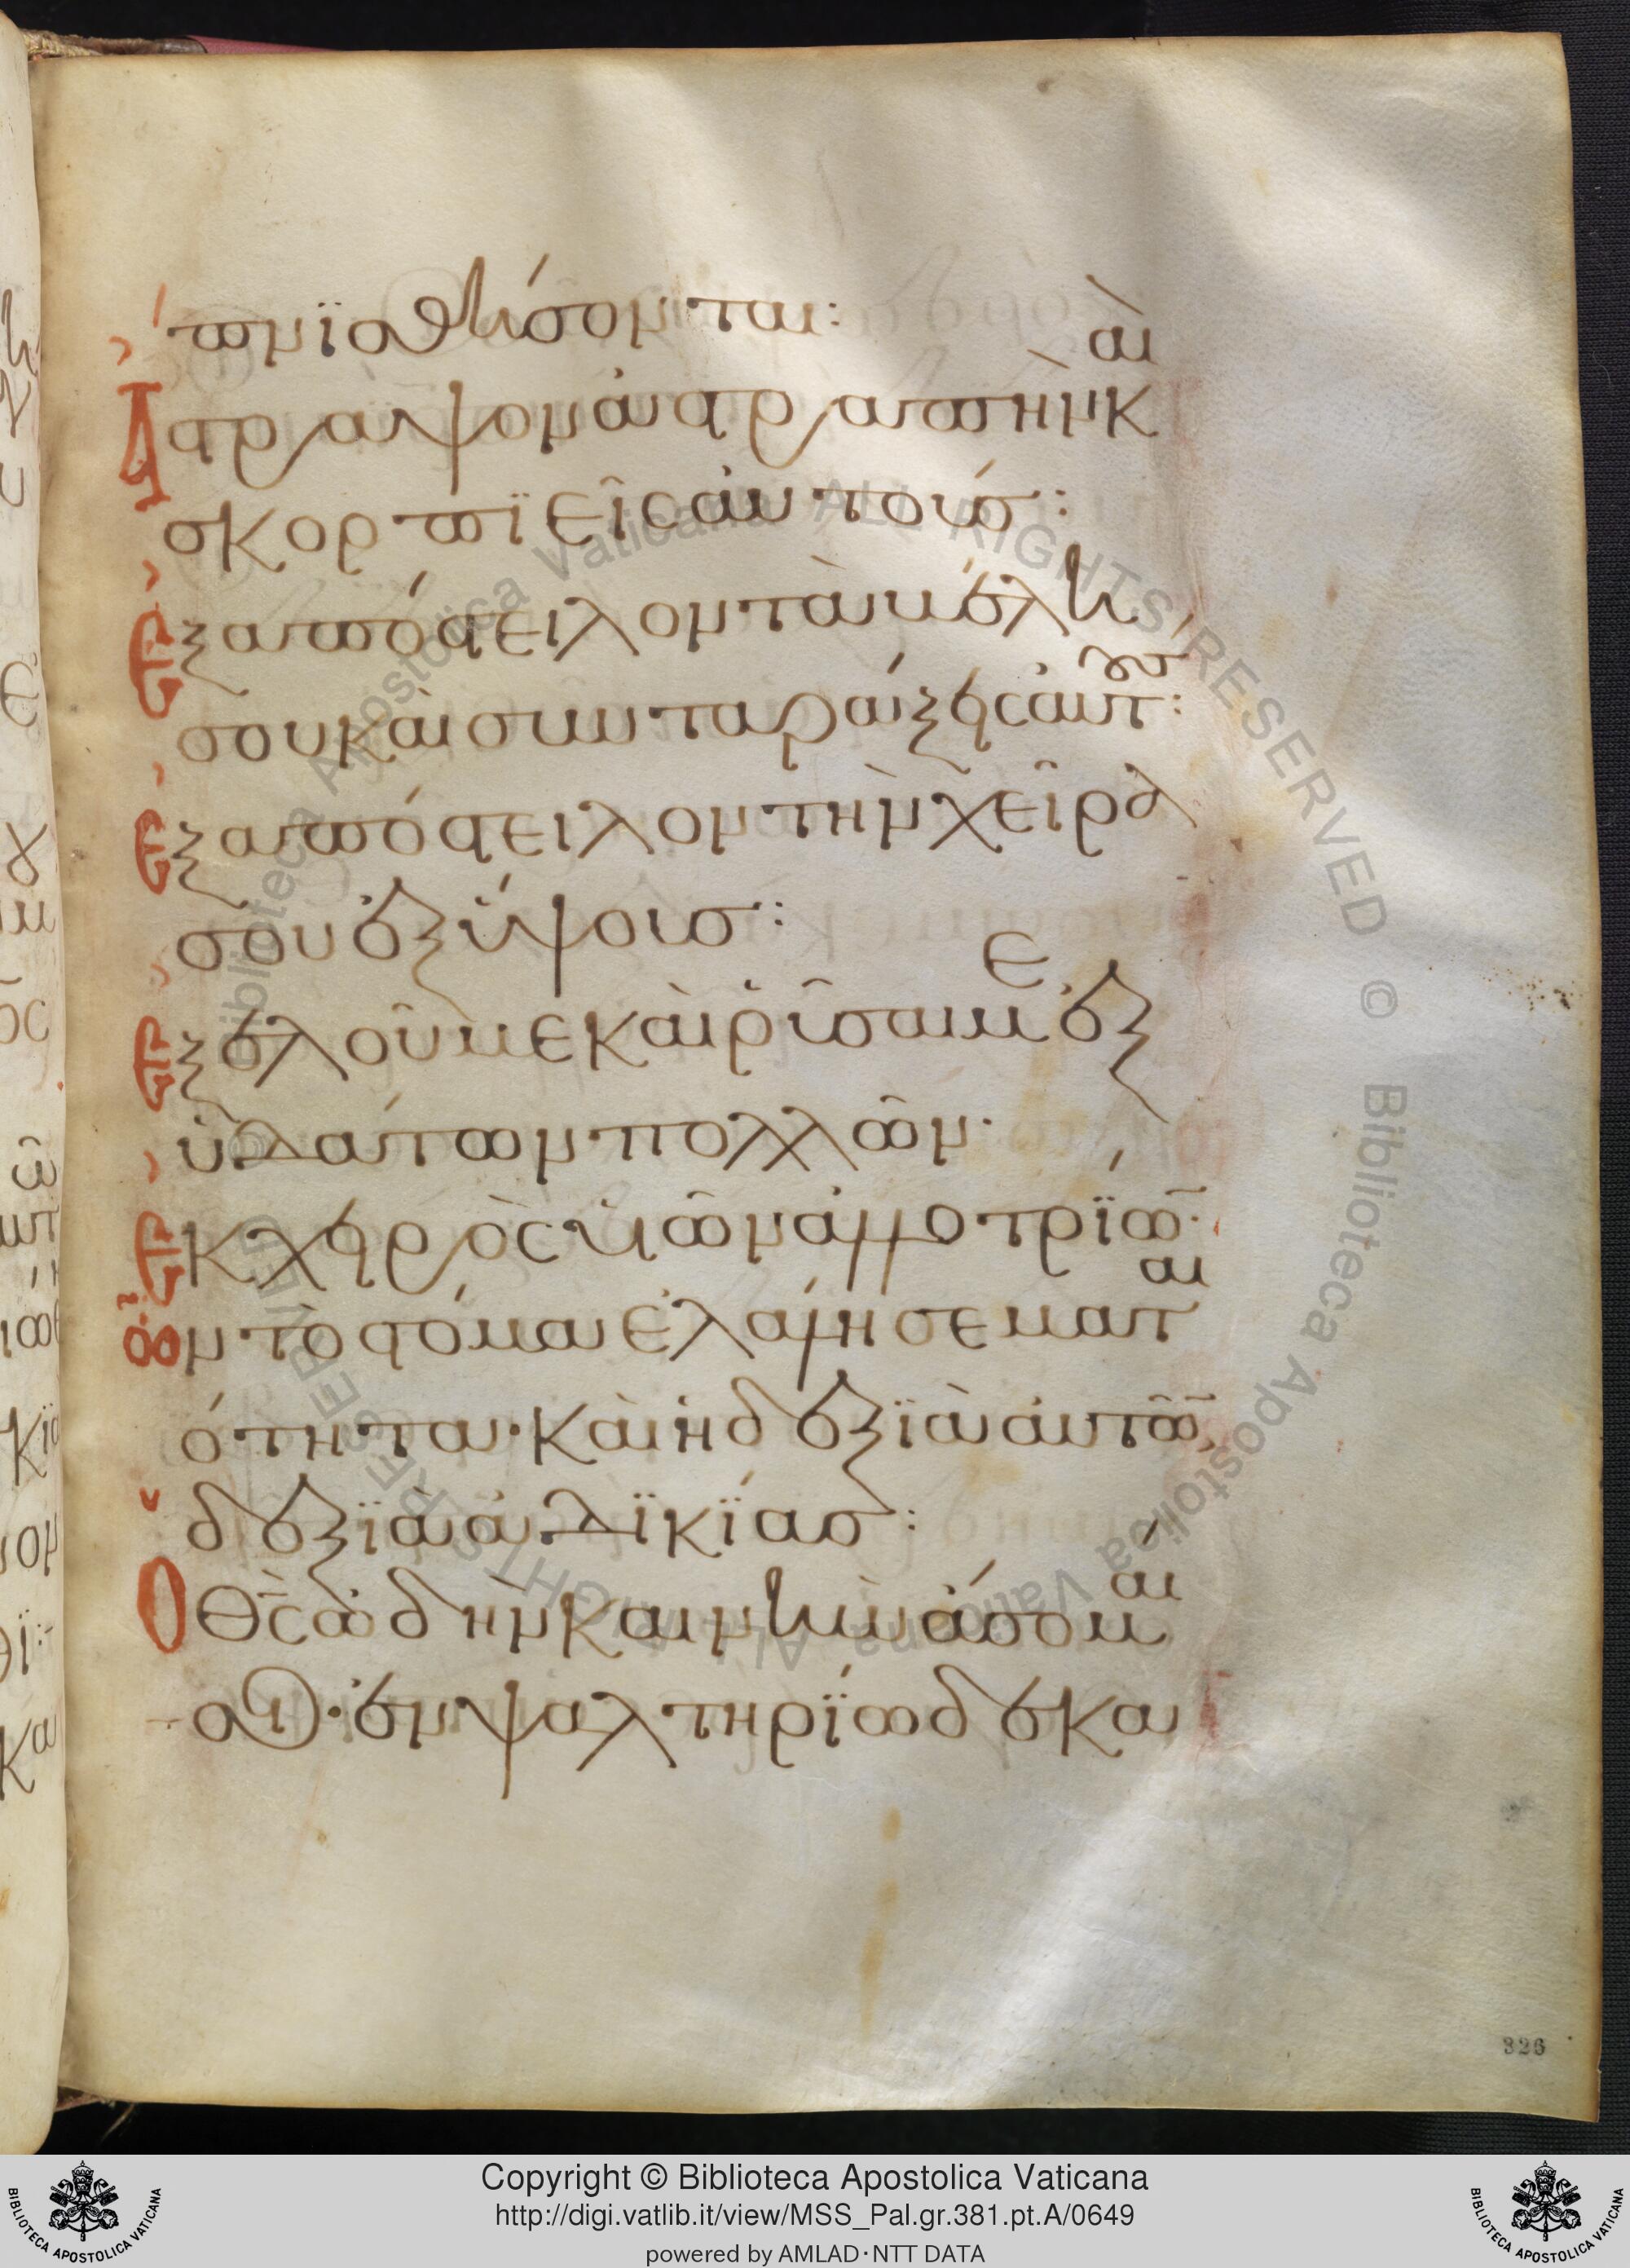 πνισθήσονται:
Ἄστραψον ἀστραπὴν καὶ
σκορπϊεῖς αὐτούσ:
Ἐξαπόστειλον τὰ βέλη
σου καὶ συνταράξεις αὐτούσ:
Ἐξαπόστειλον τὴν χεῖρά
σου ἐξ ὕψουσ:
Ἐξελοῦ με καὶ ῥῦσαί με ἐξ
ὑδάτων πολλῶν·
Ἐκ χειρὸς υἱῶν ἀλλοτρίων·
ὧν τὸ στόμα ἐλάλησε μαται
ότητα· καὶ ἡ δεξϊὰ αὐτῶν,
δεξϊὰ ἀδϊκίασ:
Ὁ θς ὠδὴν καινὴν ἄσομαί
σοι· ἐν ψαλτηρίω δεκα
326
Copyright © Biblioteca Apostolica Vaticana
http://digi.vatlib.it/view/MSS_Pal.gr.381.pt.A/0649
powered by AMLAD·NTT DATA
BIBLIOTECA APOSTOLICA VATICANA
BIBLIOTECA APOSTOLICA VATICANA
Biblioteca Apostolica Vaticana ALL RIGHTS RESERVED © Biblioteca Apostolica Vaticana ALL RIGHTS RESERVED ©